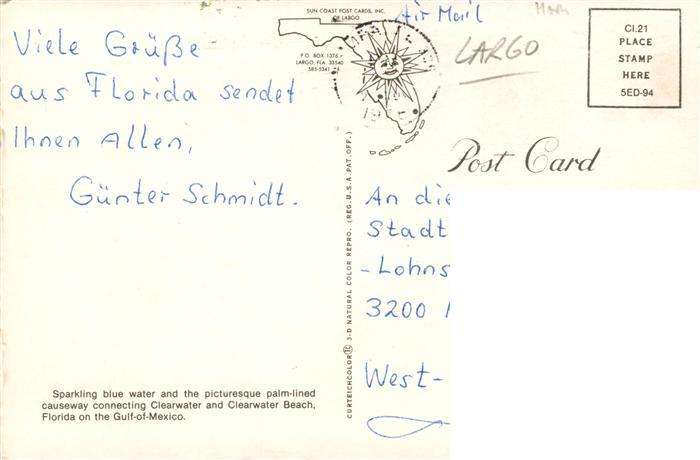 Viele Grüße
aus Florida sendet
Ihnen Allen,
Günter Schmidt.
SUN COAST POST CARDS, INC.
OF LARGO
P.O. BOX 1376
LARGO, FLA. 33540
Air Mail
LARGO
CI.21
PLACE
STAMP
HERE
5ED-94
Post Card
An die
Stadt
-Lohns
3200
West-
CURTEICHCOLOR 3-D NATURAL COLOR REPRO. (REG. U.S.A. PAT. OFF.)
Sparkling blue water and the picturesque palm-lined
causeway connecting Clearwater and Clearwater Beach,
Florida on the Gulf-of-Mexico.